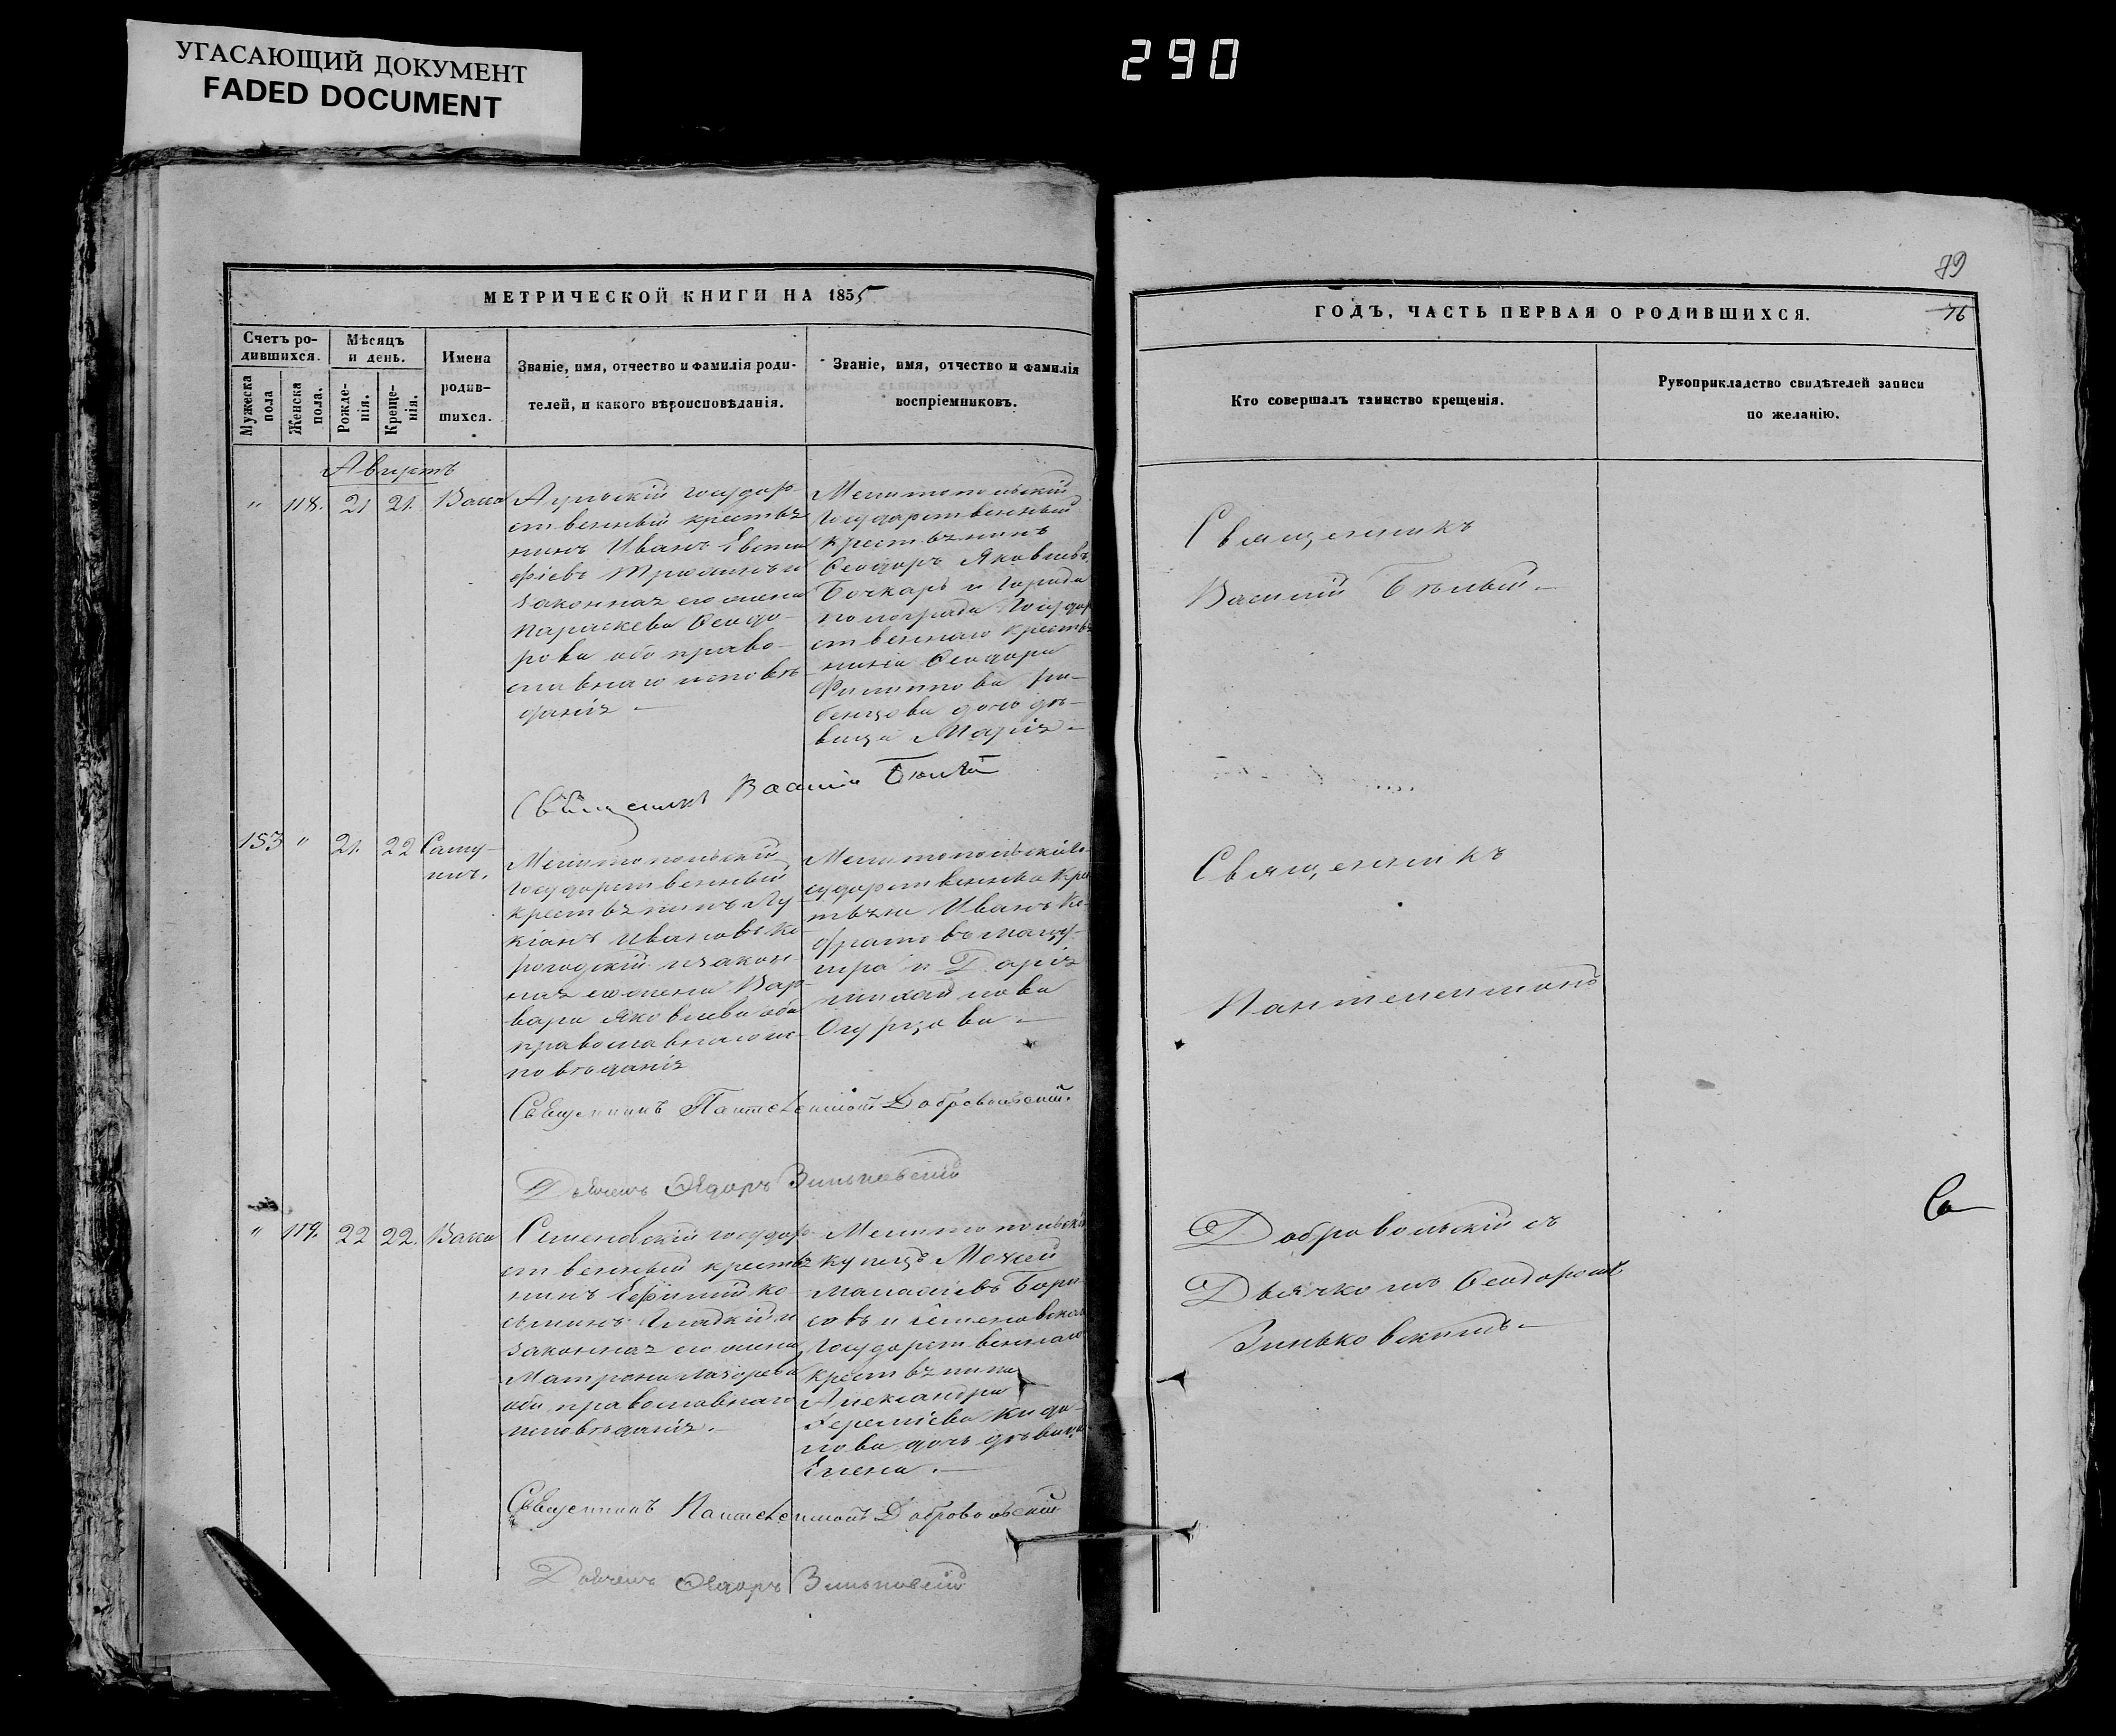 УГАСАЮЩИЙ ДОКУМЕНТ
FADED DOCUMENT
290
МЕТРИЧЕСКОЙ КНИГИ НА 1855
Счетъ ро-
дившихся.
Мѣсяцъ
и день.
Имена
родив-
шихся.
Званіе, имя, отчество и фамилія роди-
телей, и какого вѣроисповѣданія.
Званіе, имя, отчество и фамилія
воспріемниковъ.
Мужеска
пола
Женска
пола.
Рожде-
нія.
Креще-
нія.
Августъ
" 118. 21 21. Васса
государ-
ственный крестья
нинъ Иванъ Евста
фіевъ и
законная его жена
Параскева Ѳеодо-
рова оба право-
славнаго исповѣ
данія
Мелитопольскій
Государственный
крестьянинъ
Ѳеодоръ Яковлевъ
Бочкаръ и города
Государ
ственнаго крестья
нина Ѳеодора
Филиппова
дочь дѣ-
вица Марія
Священникъ Василій Бѣлый
153 " 21. 22 Сату-
нин.
Мелитопольскій
Государственный
крестьянинъ Лу
кіанъ Ивановъ Ко
рогодскій и закон
ная его жена Вар-
вара Яковлева оба
православнаго ис-
повѣданія
Мелитопольскій Го-
сударственнова кре
стьяна Иванъ Ко-
и Дарія
Михайлова
Огурцова
Священникъ Пантелеимонъ Добровольскій.
Дьячекъ Ѳедоръ Зиньковскій
" 119. 22 22. Васса
Семеновскій государ
ственный крестья
нинъ Ефимій Ко
сьминъ Гладкій и
законная его жена
Матрона Лазарева
оба православнаго
исповѣданія.
Мелитопольскій
купецъ Моисей
Борис
овъ и Семеновскаго
Государственнаго
крестьянина
Александра
дочь дѣвица
Елена.
Священникъ Пантелеимонъ Добровольскій
Дьячекъ Ѳедоръ Зиньковскій
79
ГОДЪ, ЧАСТЬ ПЕРВАЯ О РОДИВШИХСЯ.
76
Кто совершалъ таинство крещенія.
Рукоприкладство свидѣтелей записи
по желанію.
Священникъ
Василій Бѣлый.
Священникъ
Пантелеимонъ
Добровольскій съ
Дьячкомъ Ѳеодоромъ
Зиньковскимъ.